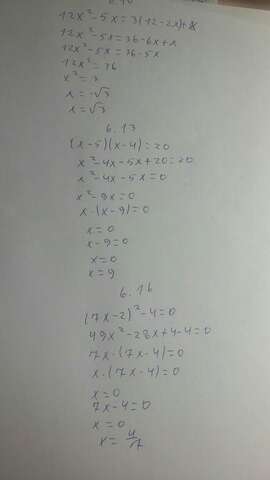 12x²-5x=3(12-2x)+x
12x²-5x=36-6x+x
12x²-5x=36-5x
12x²=36
x²=3
x=-√3
x=√3
6.13
(x-5)(x-4)=20
x²-4x-5x+20=20
x²-4x-5x=0
x²-9x=0
x·(x-9)=0
x=0
x-9=0
x=0
x=9
6.16
(7x-2)²-4=0
49x²-28x+4-4=0
7x·(7x-4)=0
x·(7x-4)=0
x=0
7x-4=0
x=0
x=4/7